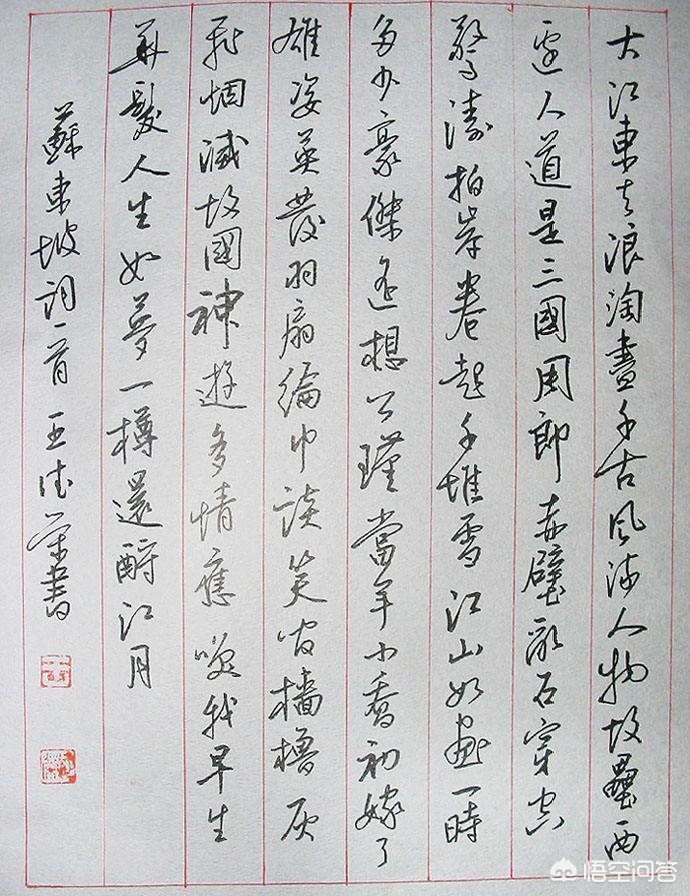 大江東去浪淘盡千古風流人物故壘西
邊人道是三國周郎赤壁亂石穿空
驚濤拍岸卷起千堆雪江山如畫一時
多少豪傑遙想公瑾當年小喬初嫁了
雄姿英發羽扇綸巾談笑間檣櫓灰
飛烟滅故國神遊多情應笑我早生
華髮人生如夢一樽還酹江月
蘇東坡詞一首 王德榮書
悟空问答